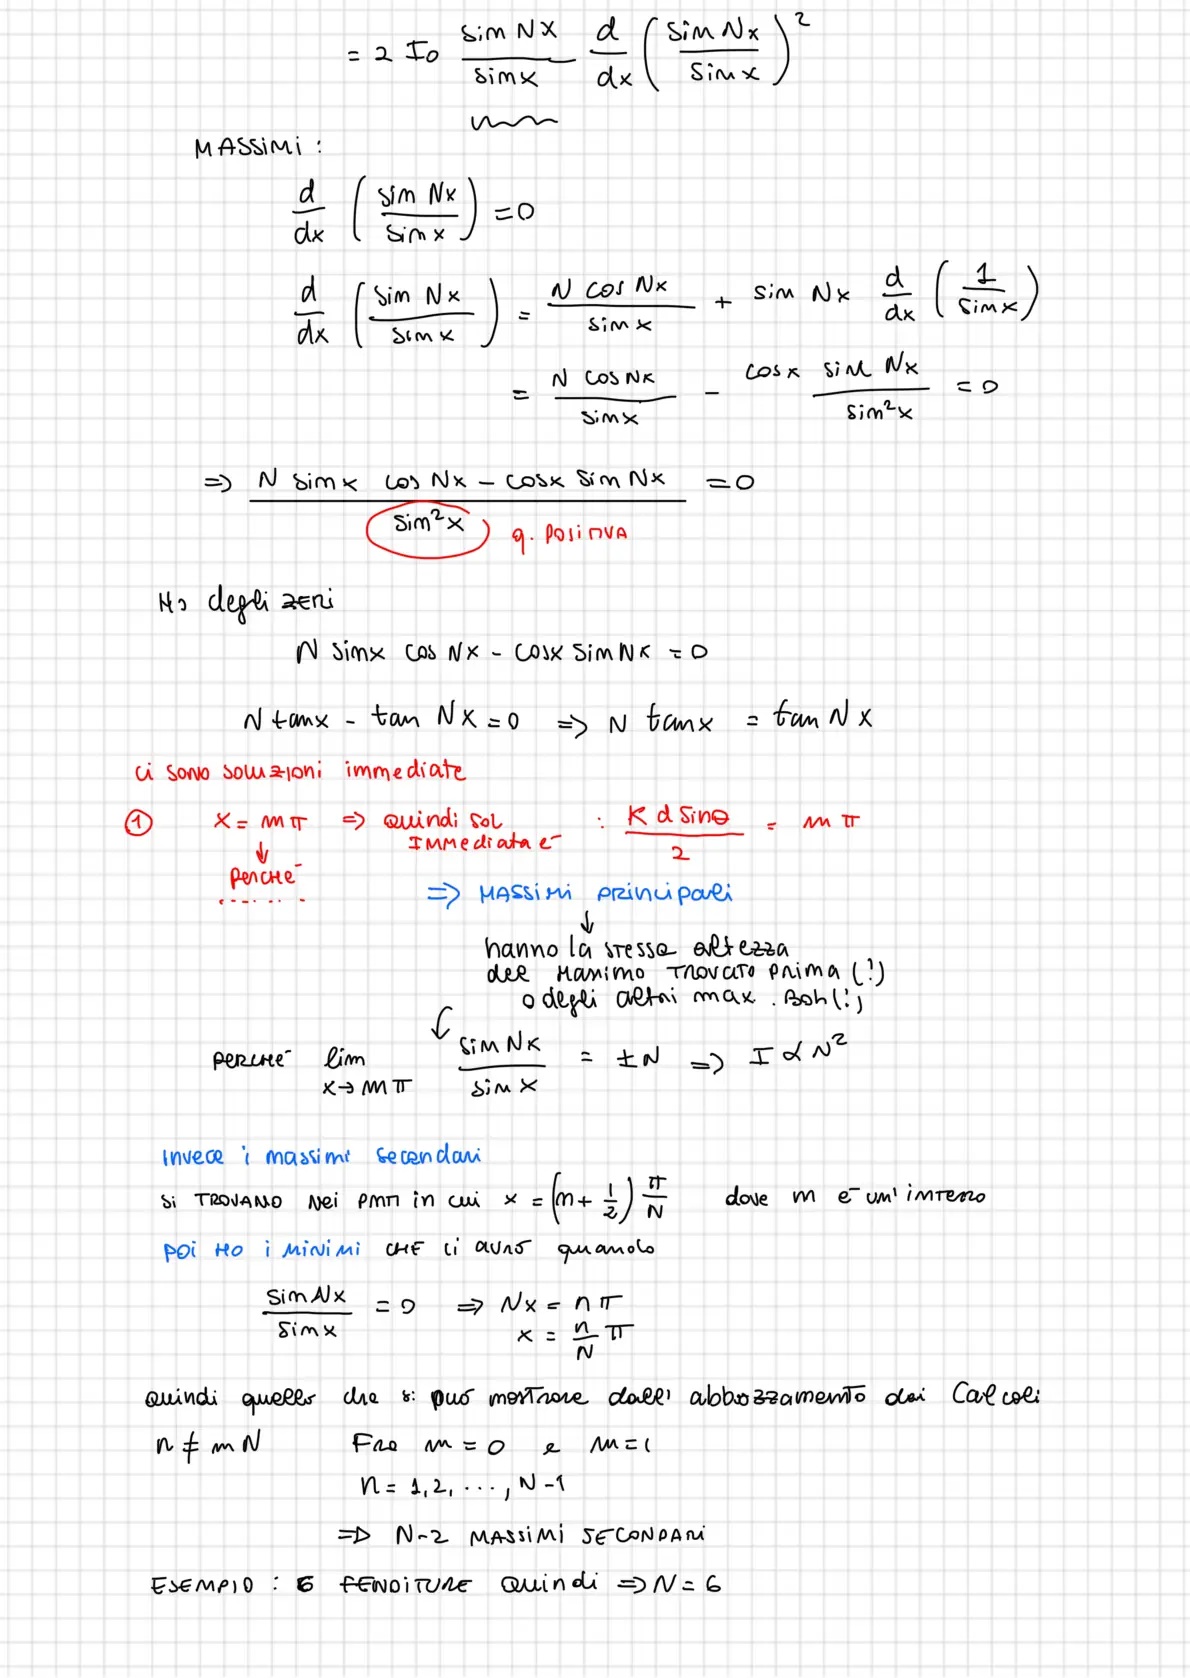 = 2 I0 sin Nx / sin x d/dx ( sin Nx / sin x )²
MASSIMI :
d/dx ( sin Nx / sin x ) = 0
d/dx ( sin Nx / sin x ) = N cos Nx / sin x + sin Nx d/dx ( 1 / sin x )
= N cos Nx / sin x - cos x sin Nx / sin² x = 0
=> N sin x cos Nx - cos x sin Nx / sin² x = 0
q. POSITIVA
Ho degli zeri
N sin x cos Nx - cos x sin Nx = 0
N tan x - tan Nx = 0 => N tan x = tan Nx
ci sono soluzioni immediate
① x = mπ => quindi sol IMMediata è : K d sinθ / 2 = m π
↓
perchè
=> MASSIMI principali
↓
hanno la stessa altezza
del MASSIMO TROVATO prima (!)
o degli altri max. Boh (!)
perchè lim x→mπ sin Nx / sin x = ±N => I ∝ N²
Invece i massimi secondari
si TROVANO nei PNTI in cui x = (n + 1/2) π/N dove n è un' intero
poi Ho i MINIMI CHE ci avrò quando
sin Nx / sin x = 0 => Nx = n π
x = n/N π
quindi quello che si può mostrare dall' abbozzamento dei Calcoli
n ≠ m N Fra m = 0 e m = 1
n = 1, 2, ..., N-1
=> N-2 MASSIMI SECONDARI
ESEMPIO : 6 FENDITURE quindi => N = 6